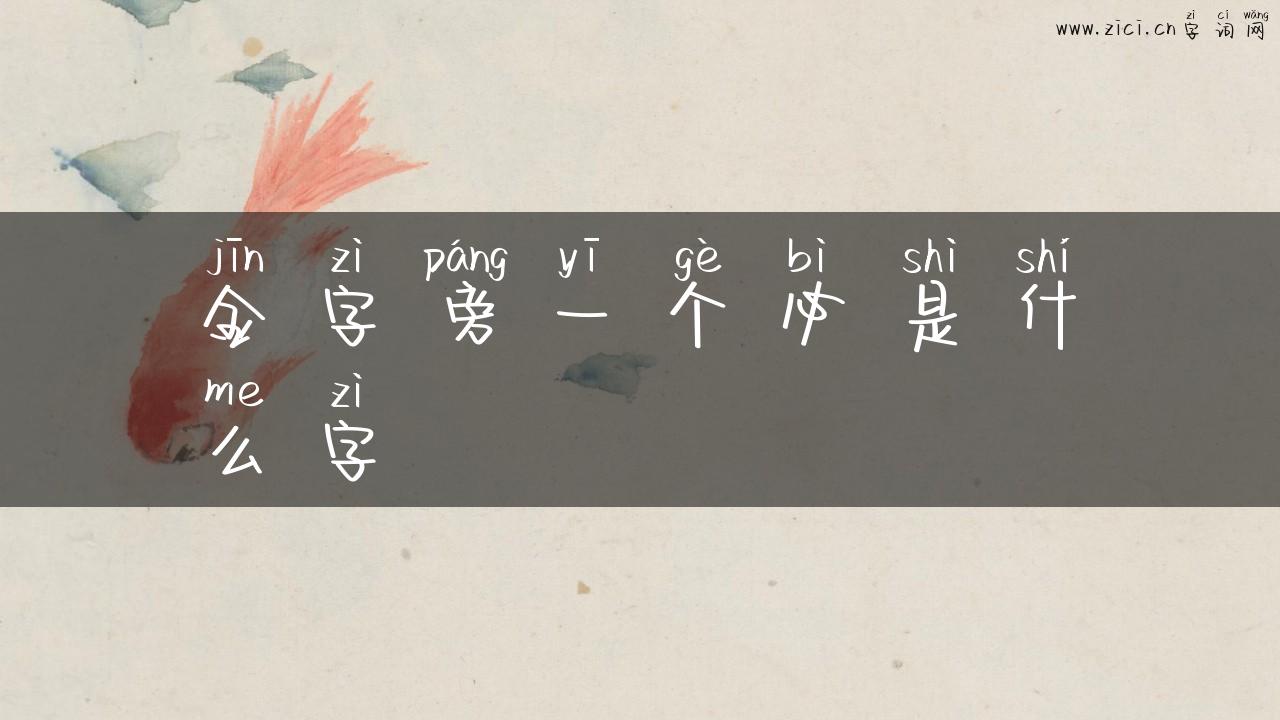 zì cí wǎng
www.zici.cn 字词网
jīn zì páng yī gè bì shì shí
金字旁一个必是什
me zì
么字